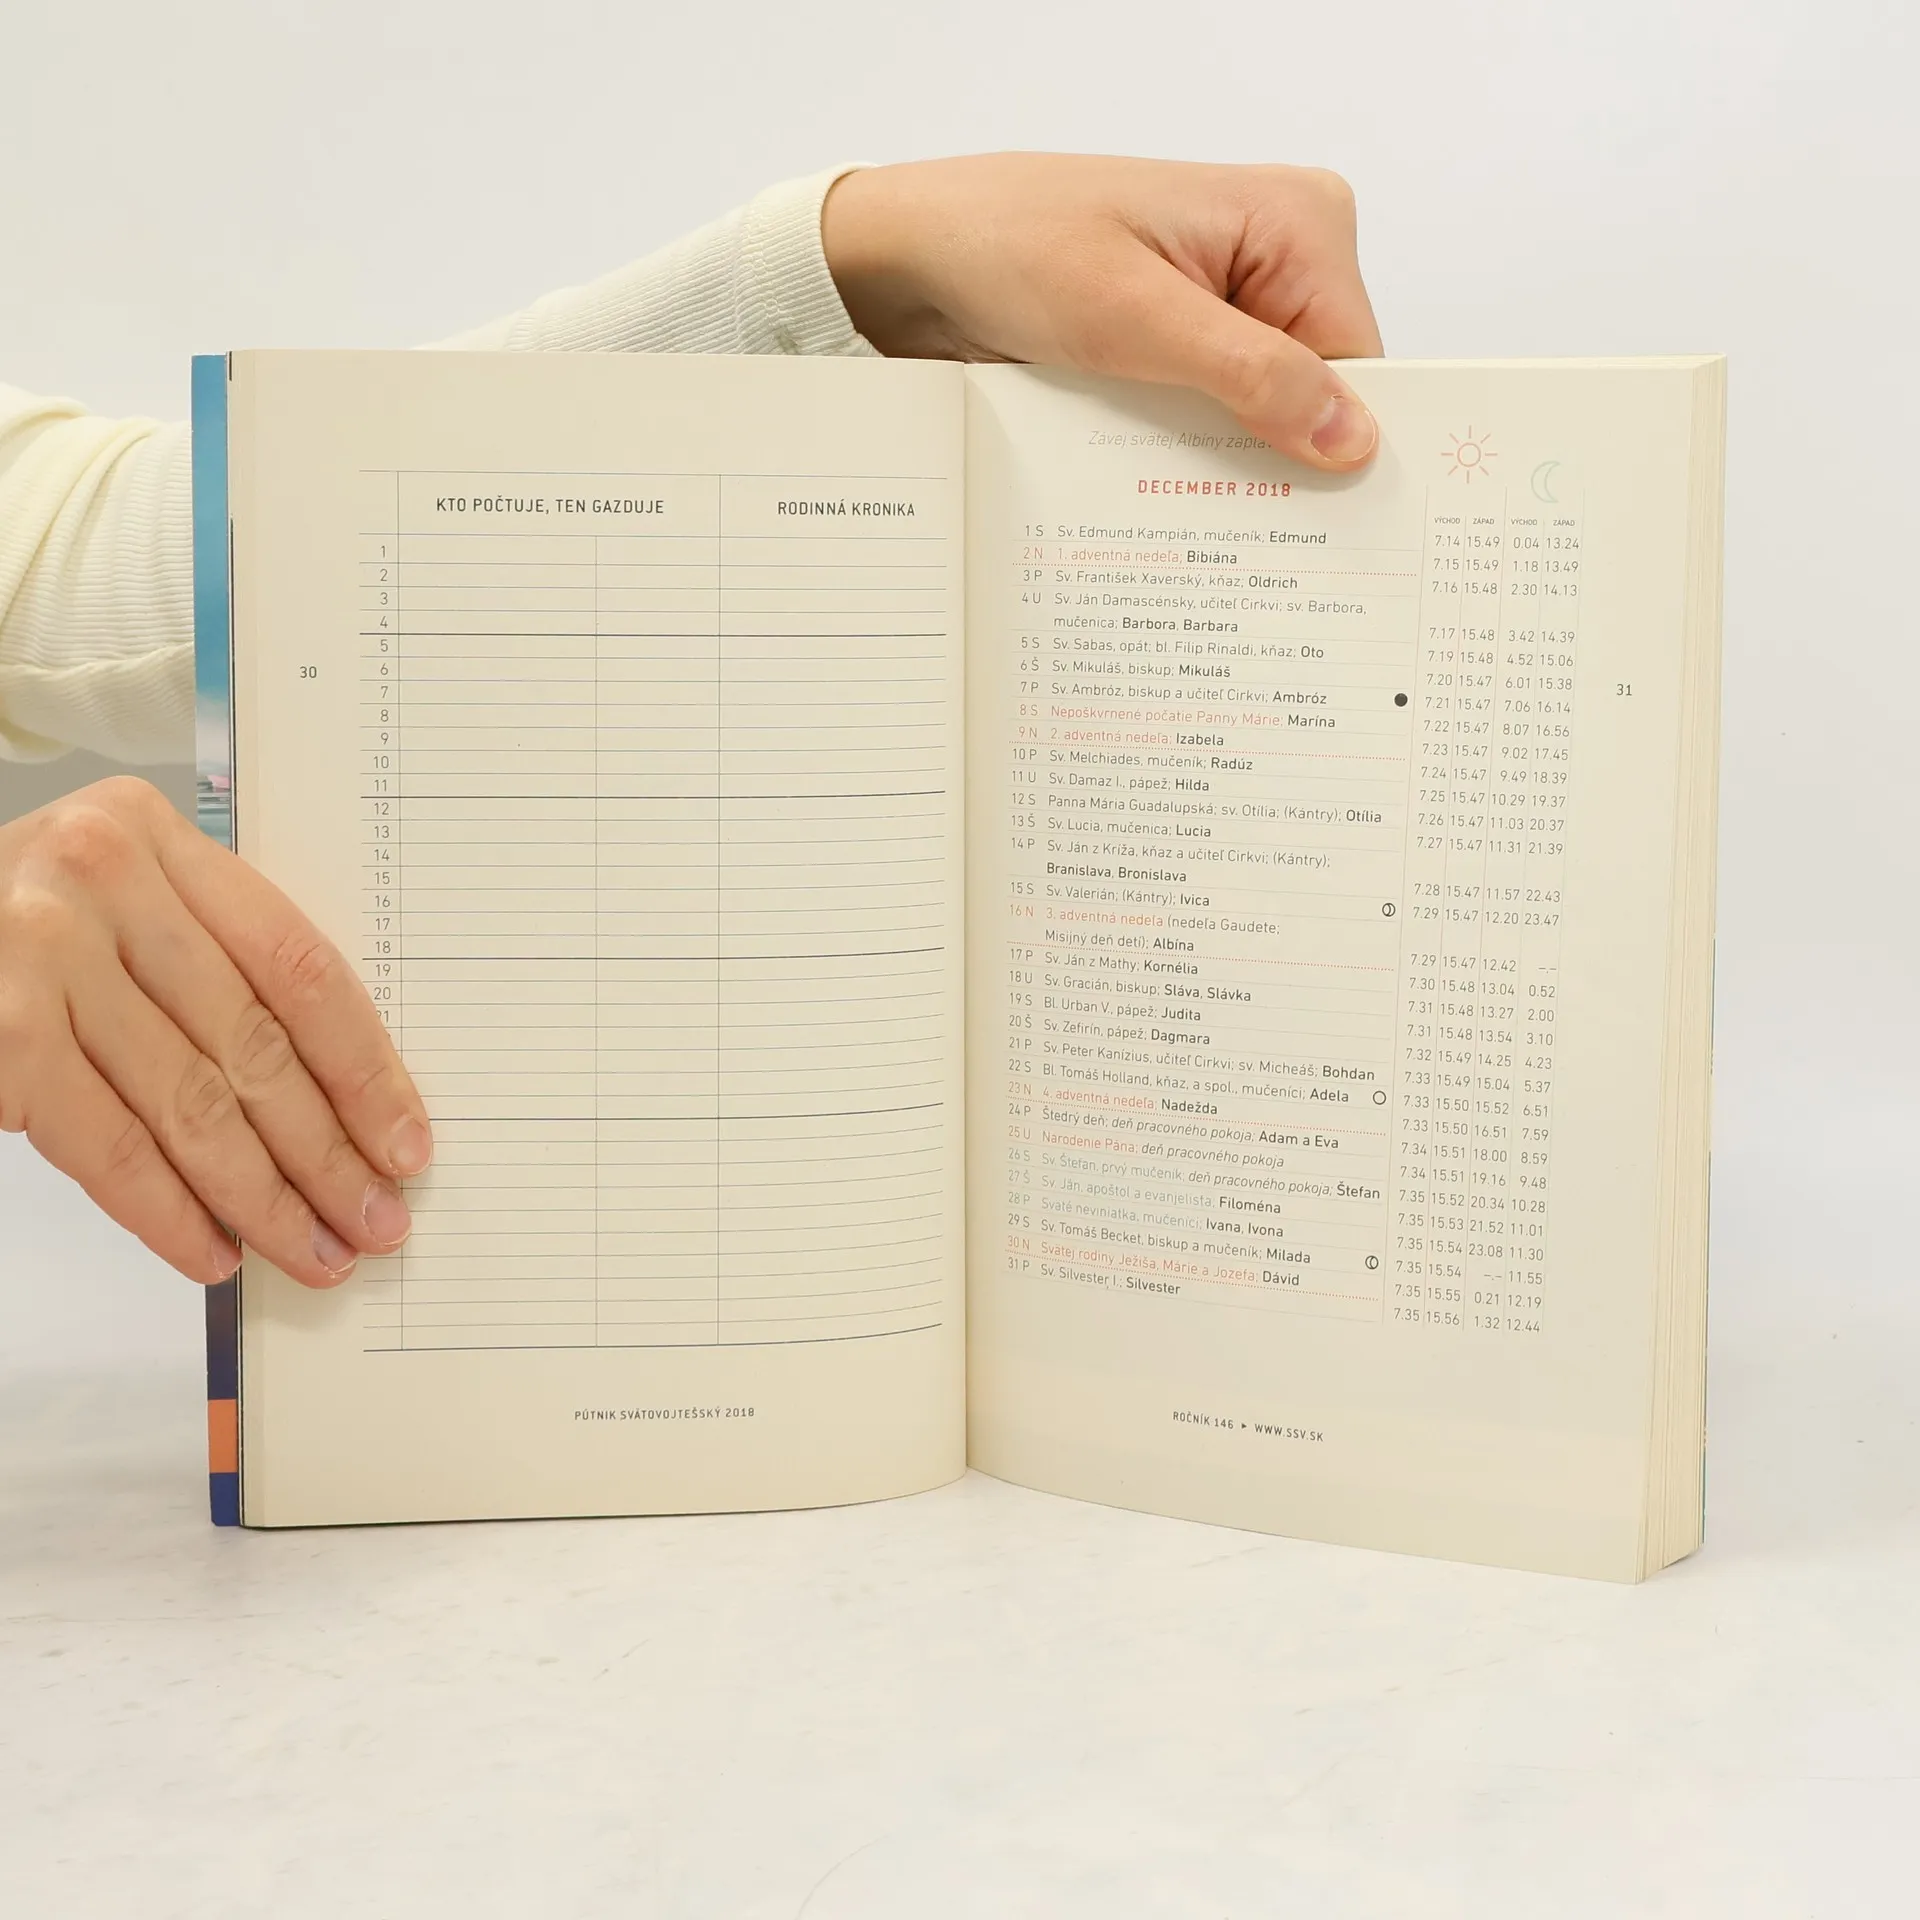 KTO POČTUJE, TEN GAZDUJE
RODINNÁ KRONIKA
1
2
3
4
5
6
7
8
9
10
11
12
13
14
15
16
17
18
19
20
30
PÚTNIK SVÄTOVOJTEŠSKÝ 2018
Závej svätej Albíny
DECEMBER 2018
VÝCHOD ZÁPAD VÝCHOD ZÁPAD
1 S Sv. Edmund Kampián, mučeník; Edmund 7.14 15.49 0.04 13.24
2 N 1. adventná nedeľa; Bibiána 7.15 15.49 1.18 13.49
3 P Sv. František Xaverský, kňaz; Oldrich 7.16 15.48 2.30 14.13
4 U Sv. Ján Damascénsky, učiteľ Cirkvi; sv. Barbora,
mučenica; Barbora, Barbara 7.17 15.48 3.42 14.39
5 S Sv. Sabas, opát; bl. Filip Rinaldi, kňaz; Oto 7.19 15.48 4.52 15.06
6 Š Sv. Mikuláš, biskup; Mikuláš 7.20 15.47 6.01 15.38
7 P Sv. Ambróz, biskup a učiteľ Cirkvi; Ambróz 7.21 15.47 7.06 16.14
8 S Nepoškvrnené počatie Panny Márie; Marína 7.22 15.47 8.07 16.56
9 N 2. adventná nedeľa; Izabela 7.23 15.47 9.02 17.45
10 P Sv. Melchiades, mučeník; Radúz 7.24 15.47 9.49 18.39
11 U Sv. Damaz I., pápež; Hilda 7.25 15.47 10.29 19.37
12 S Panna Mária Guadalupská; sv. Otília; (Kántry); Otília 7.26 15.47 11.03 20.37
13 Š Sv. Lucia, mučenica; Lucia 7.27 15.47 11.31 21.39
14 P Sv. Ján z Kríža, kňaz a učiteľ Cirkvi; (Kántry);
Branislava, Bronislava 7.28 15.47 11.57 22.43
15 S Sv. Valerián; (Kántry); Ivica 7.29 15.47 12.20 23.47
16 N 3. adventná nedeľa (nedeľa Gaudete;
Misijný deň detí); Albína 7.29 15.47 12.42 –.–
17 P Sv. Ján z Mathy; Kornélia 7.30 15.48 13.04 0.52
18 U Sv. Gracián, biskup; Sláva, Slávka 7.31 15.48 13.27 2.00
19 S Bl. Urban V., pápež; Judita 7.31 15.48 13.54 3.10
20 Š Sv. Zefirín, pápež; Dagmara 7.32 15.49 14.25 4.23
21 P Sv. Peter Kanízius, učiteľ Cirkvi; sv. Micheáš; Bohdan 7.33 15.49 15.04 5.37
22 S Bl. Tomáš Holland, kňaz, a spol., mučeníci; Adela 7.33 15.50 15.52 6.51
23 N 4. adventná nedeľa; Nadežda 7.33 15.50 16.51 7.59
24 P Štedrý deň; deň pracovného pokoja; Adam a Eva 7.34 15.51 18.00 8.59
25 U Narodenie Pána; deň pracovného pokoja 7.34 15.51 19.16 9.48
26 S Sv. Štefan, prvý mučeník; deň pracovného pokoja; Štefan 7.35 15.52 20.34 10.28
27 Š Sv. Ján, apoštol a evanjelista; Filoména 7.35 15.53 21.52 11.01
28 P Svaté neviniatka, mučeníci; Ivana, Ivona 7.35 15.54 23.08 11.30
29 S Sv. Tomáš Becket, biskup a mučeník; Milada 7.35 15.54 –.– 11.55
30 N Svätej rodiny Ježiša, Márie a Jozefa; Dávid 7.35 15.55 0.21 12.19
31 P Sv. Silvester I.; Silvester 7.35 15.56 1.32 12.44
31
ROČNÍK 146 ▸ WWW.SSV.SK